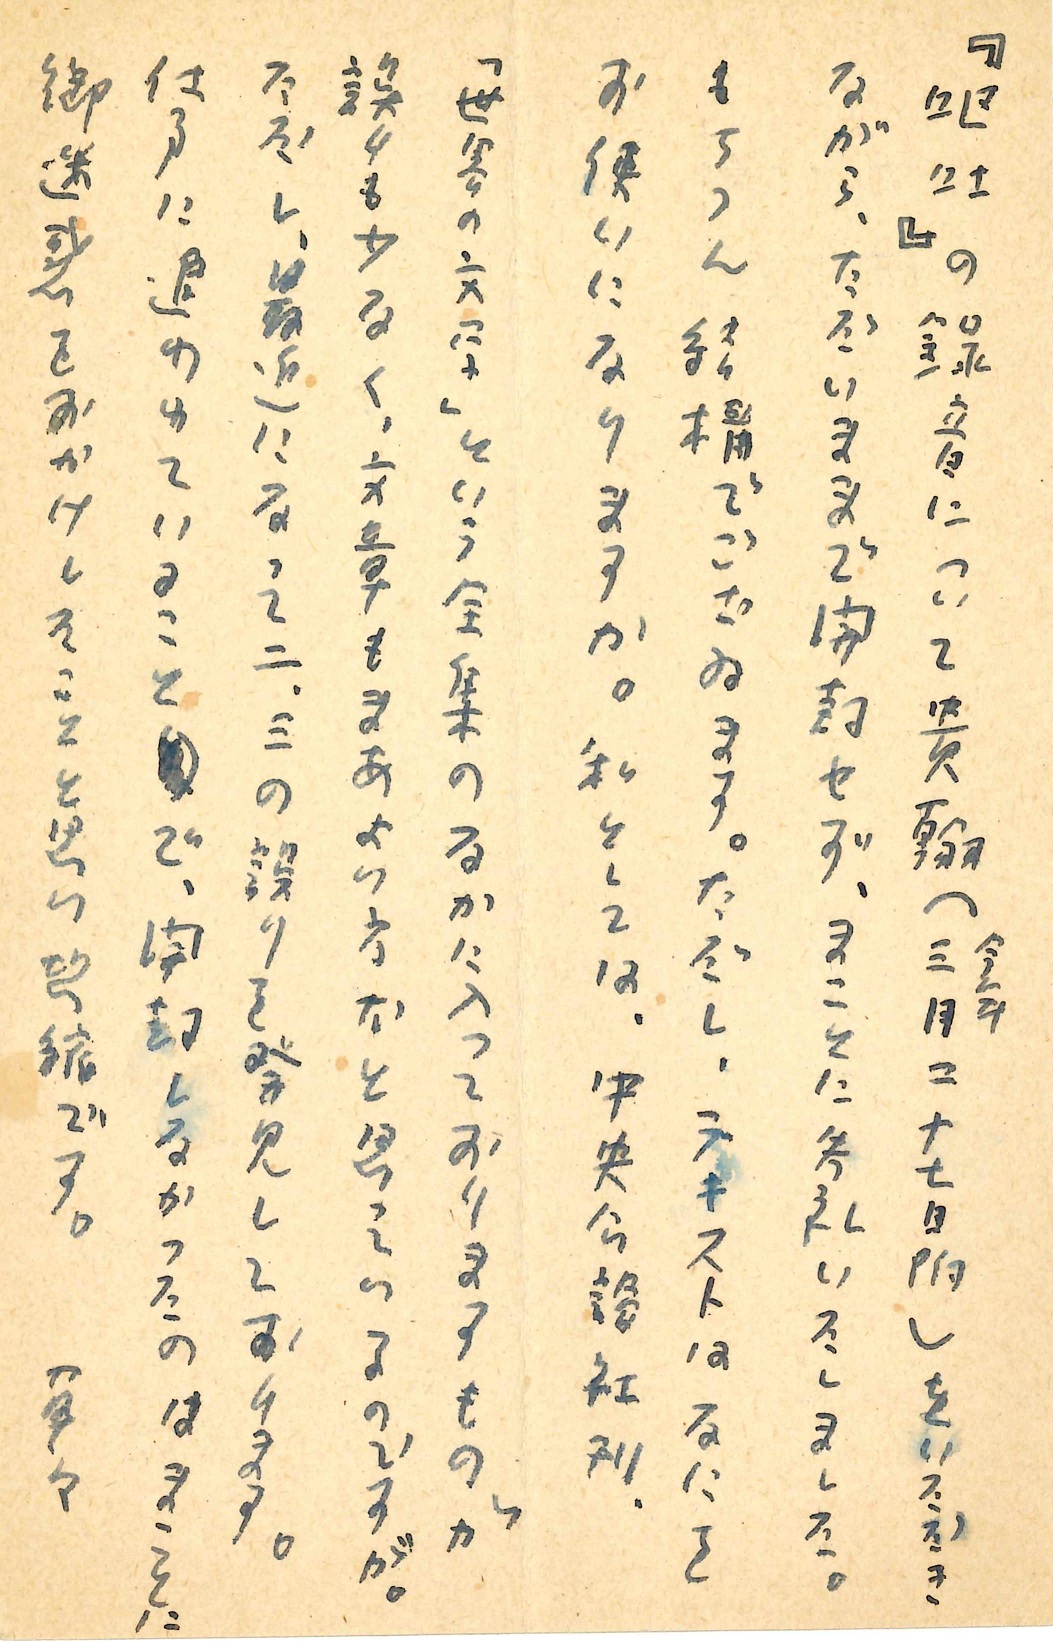 『嘔吐』の録音について貴翰（今年三月二十七日附）をいただき
ながら、ただいままで開封せず、まことに失礼いたしました。
もちろん結構でございます。ただし、テキストはなにを
お使いになりますか。私としては、中央公論社刊、
「世界の文学」という全集のなかに入っておりますものが
誤りも少なく、文章もまあよい方かと思っているのですが。
ただし、最近になって二、三の誤りを発見しております。
仕事に追われていることで、開封しなかったのはまことに
御迷惑をおかけしたことと思い恐縮です。　草々